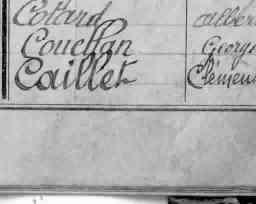 Collard Albert
Couchan George
Caillet Clément